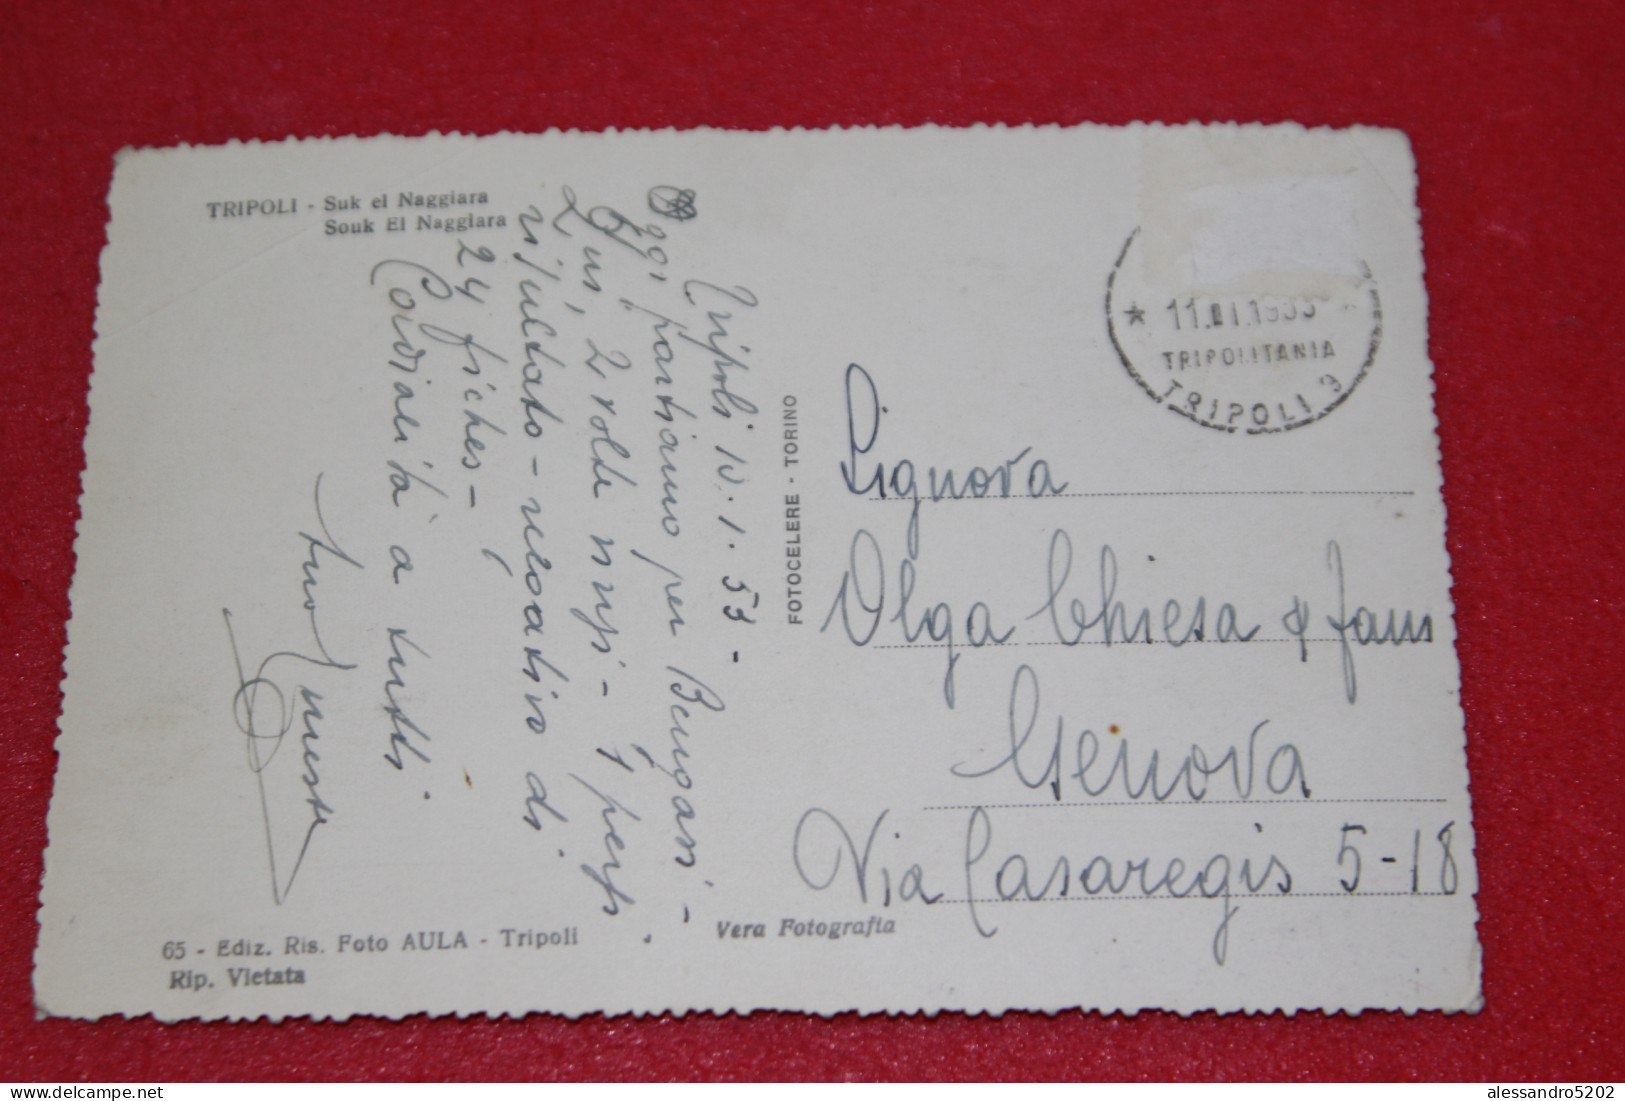 TRIPOLI - Suk el Naggiara
Souk El Naggiara
Tripoli 10.1.53 -
Oggi partiamo per Bengasi -
Qui, 2 volte - 1
risultato - negativo di
24 fiches -
Cordialità a tutti
FOTOCELERE - TORINO
11. 1.1953
TRIPOLITANIA
TRIPOLI 3
Signora
Olga Chiesa & fam
Genova
Via Casaregis 5-18
65 - Ediz. Ris. Foto AULA - Tripoli
Rip. Vietata
Vera Fotografia
alessandro5202